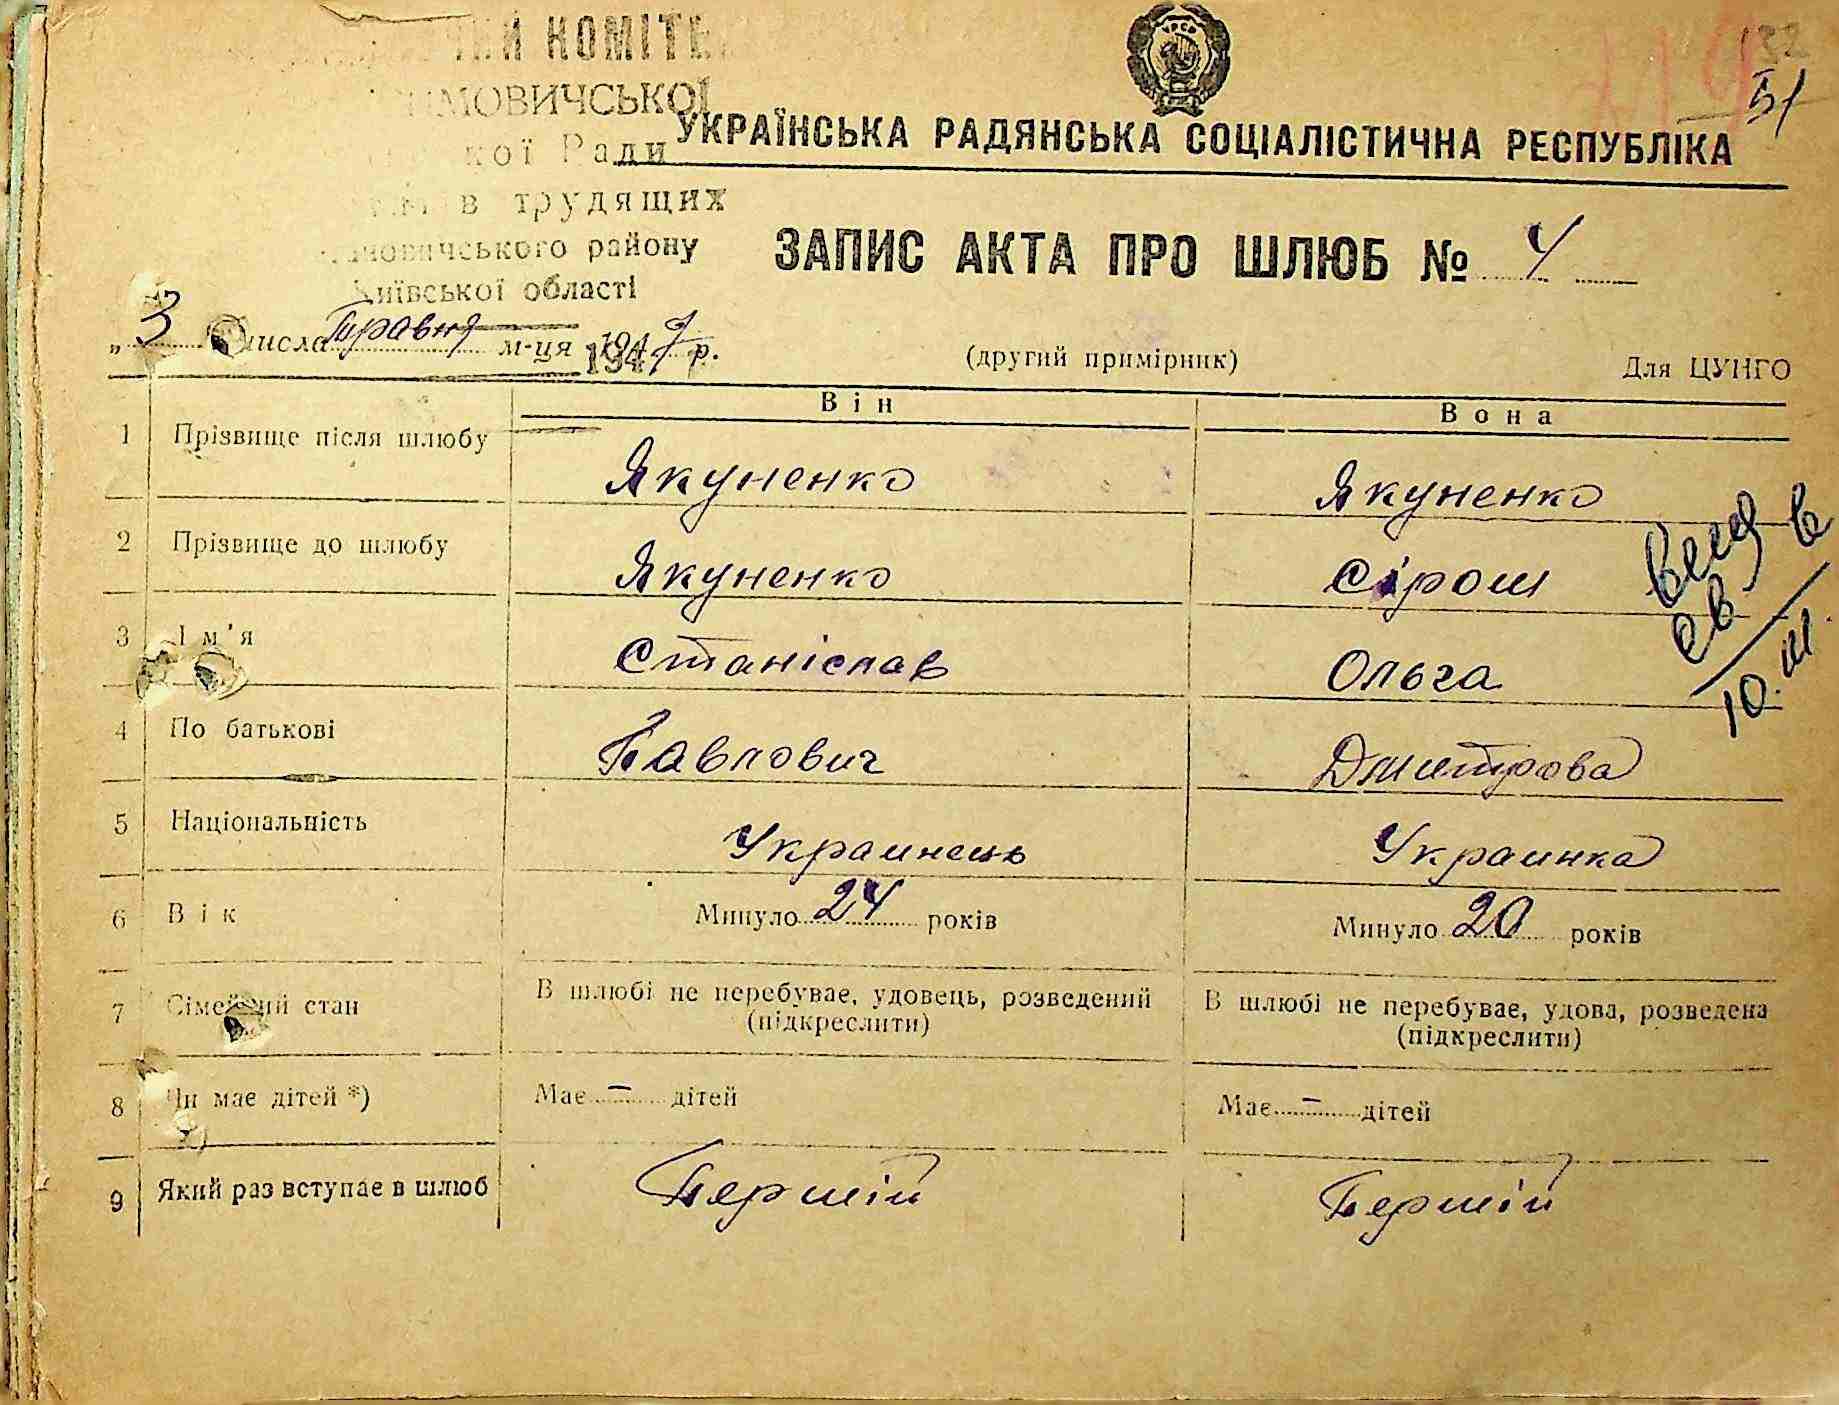 КОМІТЕ
МОВИЧСЬКОЇ
кої Ради
в трудящих
новичського району
Київської області
51
УКРАЇНСЬКА РАДЯНСЬКА СОЦІАЛІСТИЧНА РЕСПУБЛІКА
ЗАПИС АКТА ПРО ШЛЮБ № 4
„ 3 числа травня м-ця 1947 р.
(другий примірник)
Для ЦУНГО
Він Вона
1 Прізвище після шлюбу Якуненко Якуненко
2 Прізвище до шлюбу Якуненко Сірош
3 Ім'я Станіслав Ольга
10.III.
4 По батькові Павлович Дмитрова
5 Національність Украинець Украинка
6 Вік Минуло 24 років Минуло 20 років
7 Сімейний стан В шлюбі не перебуває, удовець, розведений В шлюбі не перебуває, удова, розведена
(підкреслити) (підкреслити)
8 Чи має дітей *) Має – дітей Має – дітей
9 Який раз вступає в шлюб Першій Першій